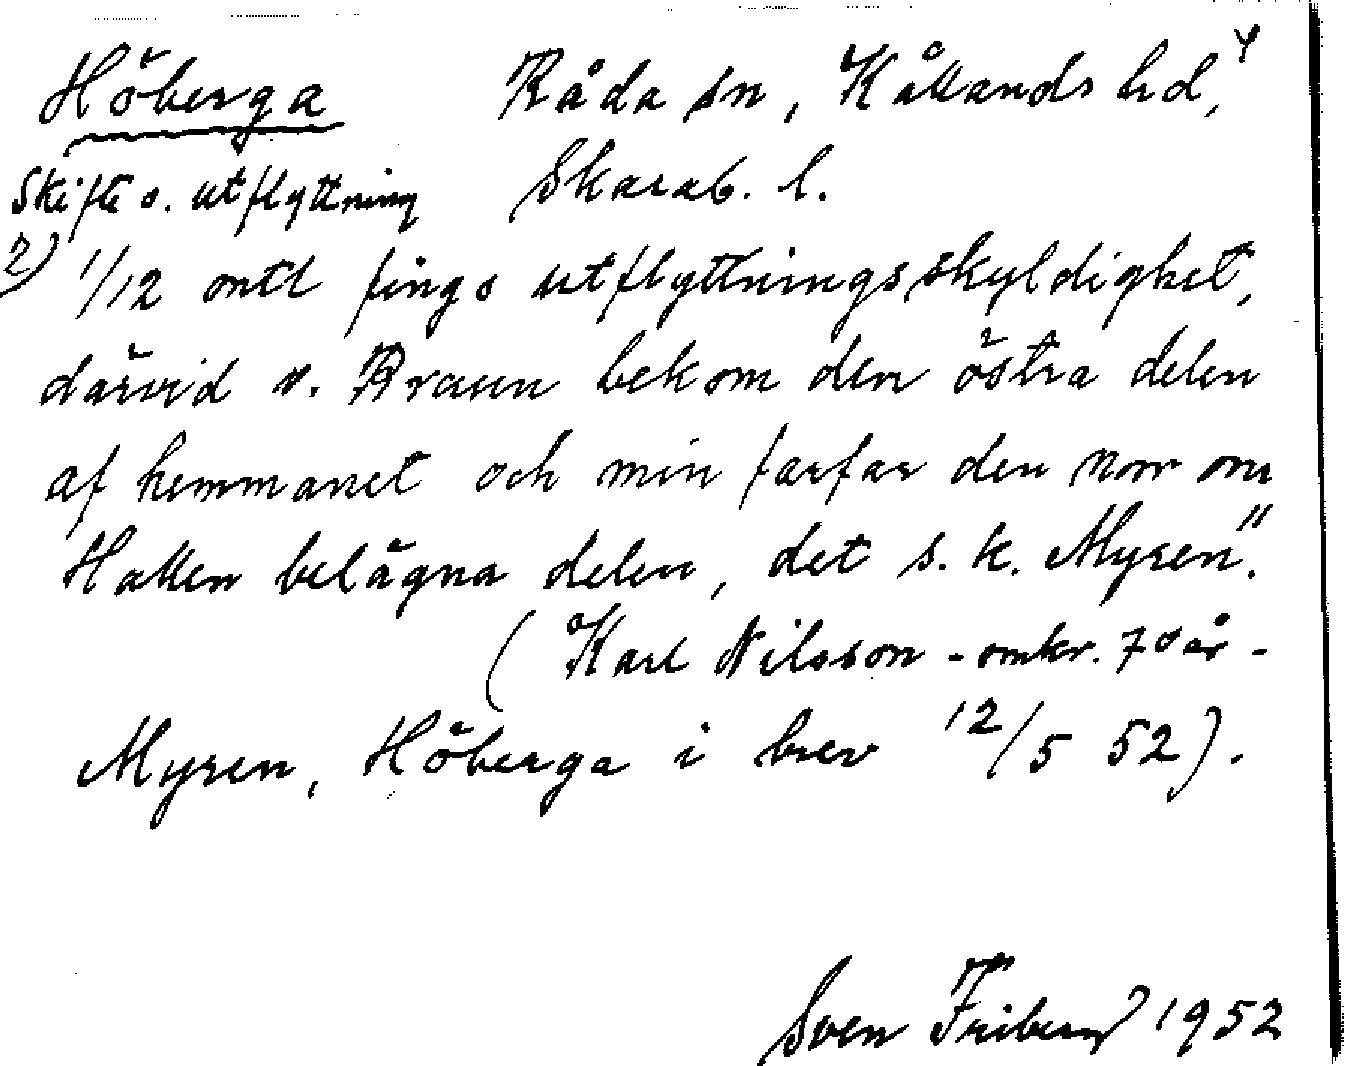 Höberga Råda sn, Kållands hd,
Skifte o. utflyttning Skarab. l.
2) 1/12 mtl fings utflyttningsskyldighet,
därvid v. Braun bekom den östra delen
af hemmanet och min farfar den norr om
Hallen belägna delen, det s. k. Myren".
(Karl Nilsson - omkr. 70 år -
Myren, Höberga i brev 12/5 52).
Sven Friberg 1952